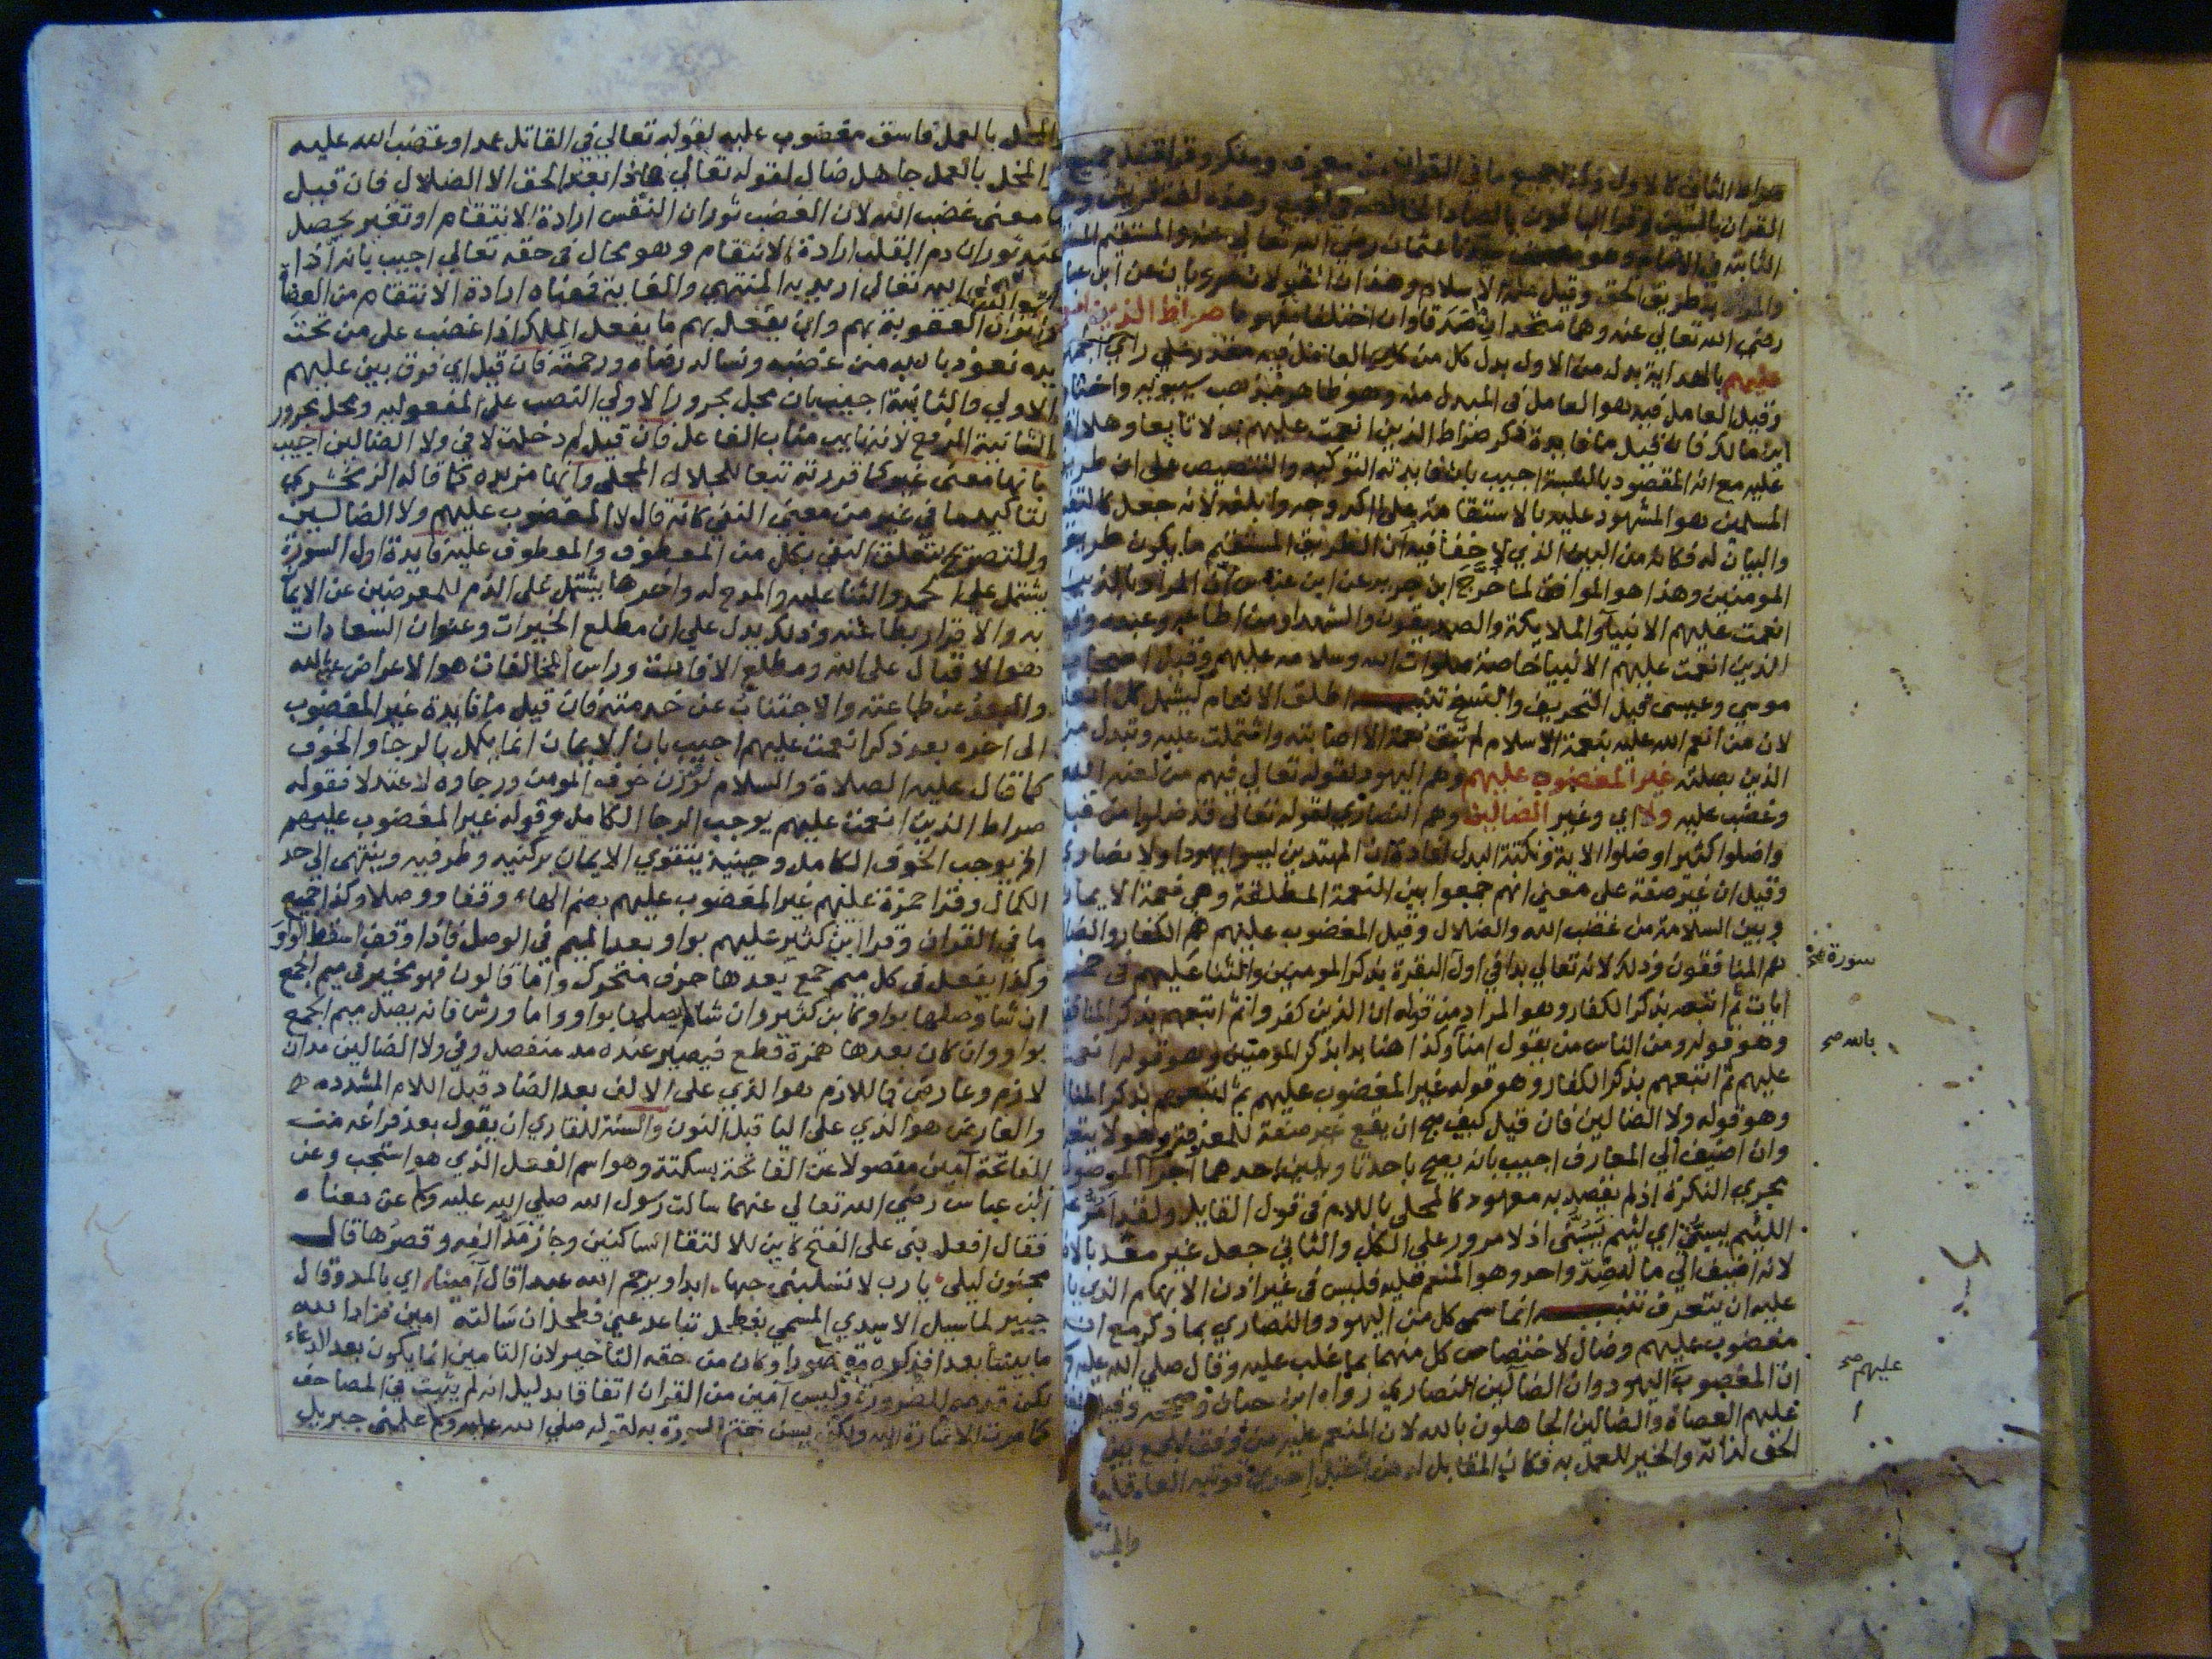 صراط الثاني كالاول وكذا جميع ما في القران من معرف ومنكر وقرا قنبل جميع
القران بالسين وقرا الباقون بالصاد الخالصة في الجميع وهذه لغة قريش وهي
الثابتة في الامام وهو مصحف سيدنا عثمان رضي الله تعالى عنه والمستقيم
والمراد به طريق الحق وقيل ملة الاسلام وهذان القولان مرويان عن ابن عبا
رضي الله تعالى عنه وهما متحدان صدقا وان اختلفا مفهوما صراط الذين
عليهم بالهداية بدل من الاول بدل كل من كل والعامل فيه مقدر على راي
وقيل العامل فيه هو العامل في المبدل منه وهو ظاهر مذهب سيبويه واختا
ابن مالك فان قيل ما فايدة ذكر صراط الذين انعمت عليهم بدلا تابعا وهلا
عليه مع انه المقصود بالنسبة اجيب بان فايدته التوكيد والتنصيص على ان طريق
المسلمين هو المشهود عليه بالاستقامة على اكد وجه وابلغه لانه جعل كالتف
والبيان له فكانه من البين الذي لا خفا فيه ان الطريق المستقيم ما يكون طريق
المومنين وهذا هو الموافق لما خرج ابن جرير عن ابن عباس ان المراد بالذين
انعمت عليهم الانبيا والملايكة والصديقون والشهدا ومن اطاعه وعبده وقيل
الذين انعمت عليهم الانبيا خاصة صلوات الله وسلامه عليهم وقيل اصحاب
موسى وعيسى قبل التحريف والنسخ تنبيه اطلق الانعام ليشمل كل انعام
لان من انعم الله عليه بنعمة الاسلام لم تبق نعمة الا اصابته واشتملت عليه وتبدل من
الذين بصلته غير المغضوب عليهم وهم اليهود لقوله تعالى فيهم من لعنه الله
وغضب عليه ولا اي وغير الضالين وهم النصارى لقوله تعالى قد ضلوا من قبل
واضلوا كثيرا وضلوا الاية ونكتة البدل افادة ان المهتدين ليسوا يهودا ولا نصارى
وقيل ان غير صفة على معنى انهم جمعوا بين النعمة المطلقة وهي نعمة الايمان
وبين السلامة من غضب الله والضلال وقيل المغضوب عليهم هم الكفار والضا
هم المنافقون وذلك لانه تعالى بدا في اول البقرة بذكر المومنين والثنا عليهم في خمس
ايات ثم اتبعه بذكر الكفار وهو المراد من قوله ان الذين كفروا ثم اتبعهم بذكر المنافقين
وهو قوله ومن الناس من يقول امنا وكذا هنا بدا بذكر المومنين وهو قوله انعمت
عليهم ثم اتبعهم بذكر الكفار وهو قوله غير المغضوب عليهم ثم اتبعهم بذكر المنا
وهو قوله ولا الضالين فان قيل كيف صح ان يقع غير صفة للمعرفة وهو لا يتعرف
وان اضيف الى المعارف اجيب بانه يصح باحد تاويلين احدهما اجرا الموصول
مجرى النكرة اذ لم يقصد به معهود كالمحلى باللام في قول القايل ولقد امر على
اللئيم يسبني اي لئيم يسبني اذ لا مرور على الكل والثاني جعل غير معرفة بالاضا
لانه اضيف الى ما له ضد واحد وهو المنعم عليه فليس في غير اذن الابهام الذي يا
عليه ان يتعرف تنبيه انما سمى كل من اليهود والنصارى بما ذكر مع انه
مغضوب عليهم وضال لاختصاص كل منهما بما غلب عليه وقال صلى الله عليه و
ان المغضوب اليهود وان الضالين النصارى رواه ابن حبان وصححه وقيل
عليهم العصاة والضالين الجاهلون بالله لان المنعم عليه من وفق للجمع بين
الحق لذاته والخير للعمل به فكان المقابل له من اختل احدى قوتيه العاقلة
سورة صح
بالله صح
عليهم صح
المخل بالعمل فاسق مغضوب عليه لقوله تعالى في القاتل عمدا وغضب الله عليه
والمخل بالعمل جاهل ضال لقوله تعالى فماذا بعد الحق الا الضلال فان قيل
ما معنى غضب الله لان الغضب ثوران النفس ارادة الانتقام او تغير يحصل
عند ثوران دم القلب ارادة الانتقام وهو محال في حقه تعالى اجيب بانه اذا
اسند الى الله تعالى اريد به المنتهى والغاية فمعناه ارادة الانتقام من العصاة
وانزال العقوبة بهم وان يفعل بهم ما يفعل الملك اذا غضب على من تحت
يده نعوذ بالله من غضبه ونساله رضاه ورحمته فان قيل اي فرق بين عليهم
الاولى والثانية اجيب بان محل مجرور الاولى النصب على المفعوليه ومحل مجرور
الثانية الرفع لانه نايب مناب الفاعل فان قيل لم دخلت لا في ولا الضالين اجيب
بانها بمعنى غير كما قررته تبعا للجلال المحلي وانها مزيدة كما قاله الزمخشري
لتاكيد ما في غير من معنى النفي كانه قال لا المغضوب عليهم ولا الضالين
وللتصريح بتعلق النفي بكل من المعطوف والمعطوف عليه فايدة اول السورة
يشتمل على الحمد والثنا عليه والمدح له واخرها يشتمل على الذم للمعرضين عن الايمان
به والاقرار بطاعته وذلك يدل على ان مطلع الخيرات وعنوان السعادات
هو الاقبال على الله ومطلع الافات وراس المخالفات هو الاعراض عن الله
والبعد عن طاعته والاجتناب عن خدمته فان قيل ما فايدة غير المغضوب
الى اخره بعد ذكر انعمت عليهم اجيب بان الايمان انما يكمل بالرجا والخوف
كما قال عليه الصلاة والسلام لو وزن خوف المومن ورجاوه لاعتدلا فقوله
صراط الذين انعمت عليهم يوجب الرجا الكامل وقوله غير المغضوب عليهم
الخ يوجب الخوف الكامل وحينيذ يتقوى الايمان بركنيه وطرفيه وينتهى الى حد
الكمال وقرا حمزة عليهم غير المغضوب عليهم بضم الهاء وقفا ووصلا وكذا جميع
ما في القران وقرا ابن كثير عليهم بواو بعد الميم في الوصل فاذا وقف اسقط الواو
وكذا يفعل في كل ميم جمع بعدها حرف متحرك واما قالون فهو مخير في ميم الجمع
ان شا وصلها بواو كابن كثير وان شا لم يصلها بواو واما ورش فانه يصل ميم الجمع
بواو وان كان بعدها همزة قطع فيصير عنده مد منفصل وفي ولا الضالين مدان
لازم وعارض فاللازم هو الذي على الالف بعد الضاد قبل اللام المشدده
والعارض هو الذي على اليا قبل النون والسنة للقاري ان يقول بعد فراغه من
الفاتحة امين مفصولا عن الفاتحة بسكتة وهو اسم الفعل الذي هو استجب وعن
ابن عباس رضي الله تعالى عنهما سالت رسول الله صلى الله عليه وسلم عن معناه
فقال افعل بنى على الفتح كاين لالتقا الساكنين وجاز مد الفه وقصرها قال
مجنون ليلى يا رب لا تسلبني حبها ابدا ويرحم الله عبدا قال امينا اي بالمد وقال
جبير لما سيل الاسدي المسمى بفطحل تباعد عني فطحل اذ سالته امين فزاد الله
ما بيننا بعدا فذكره مقصورا وكان من حقه التاخير لان التامين انما يكون بعد الدعاء
لكن قدمه للضرورة وليس امين من القران اتفاقا بدليل انه لم يثبت في المصاحف
كما مرت الاشارة اليه ولكن يسن ختم السورة به لقوله صلى الله عليه وسلم علمني جبريل